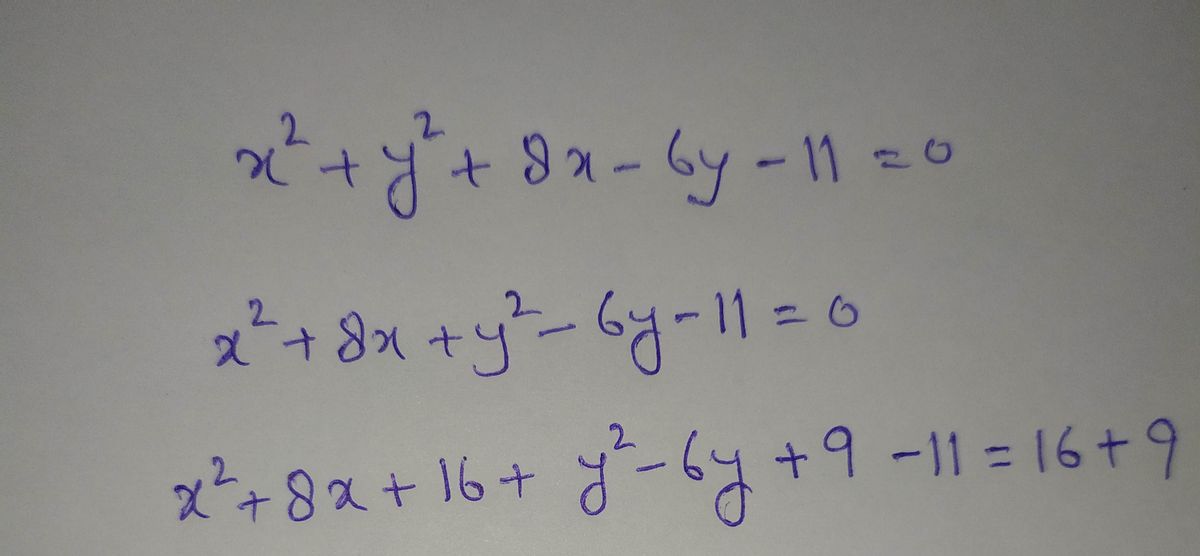 x² + y² + 8x - 6y - 11 = 0
x² + 8x + y² - 6y - 11 = 0
x² + 8x + 16 + y² - 6y + 9 - 11 = 16 + 9